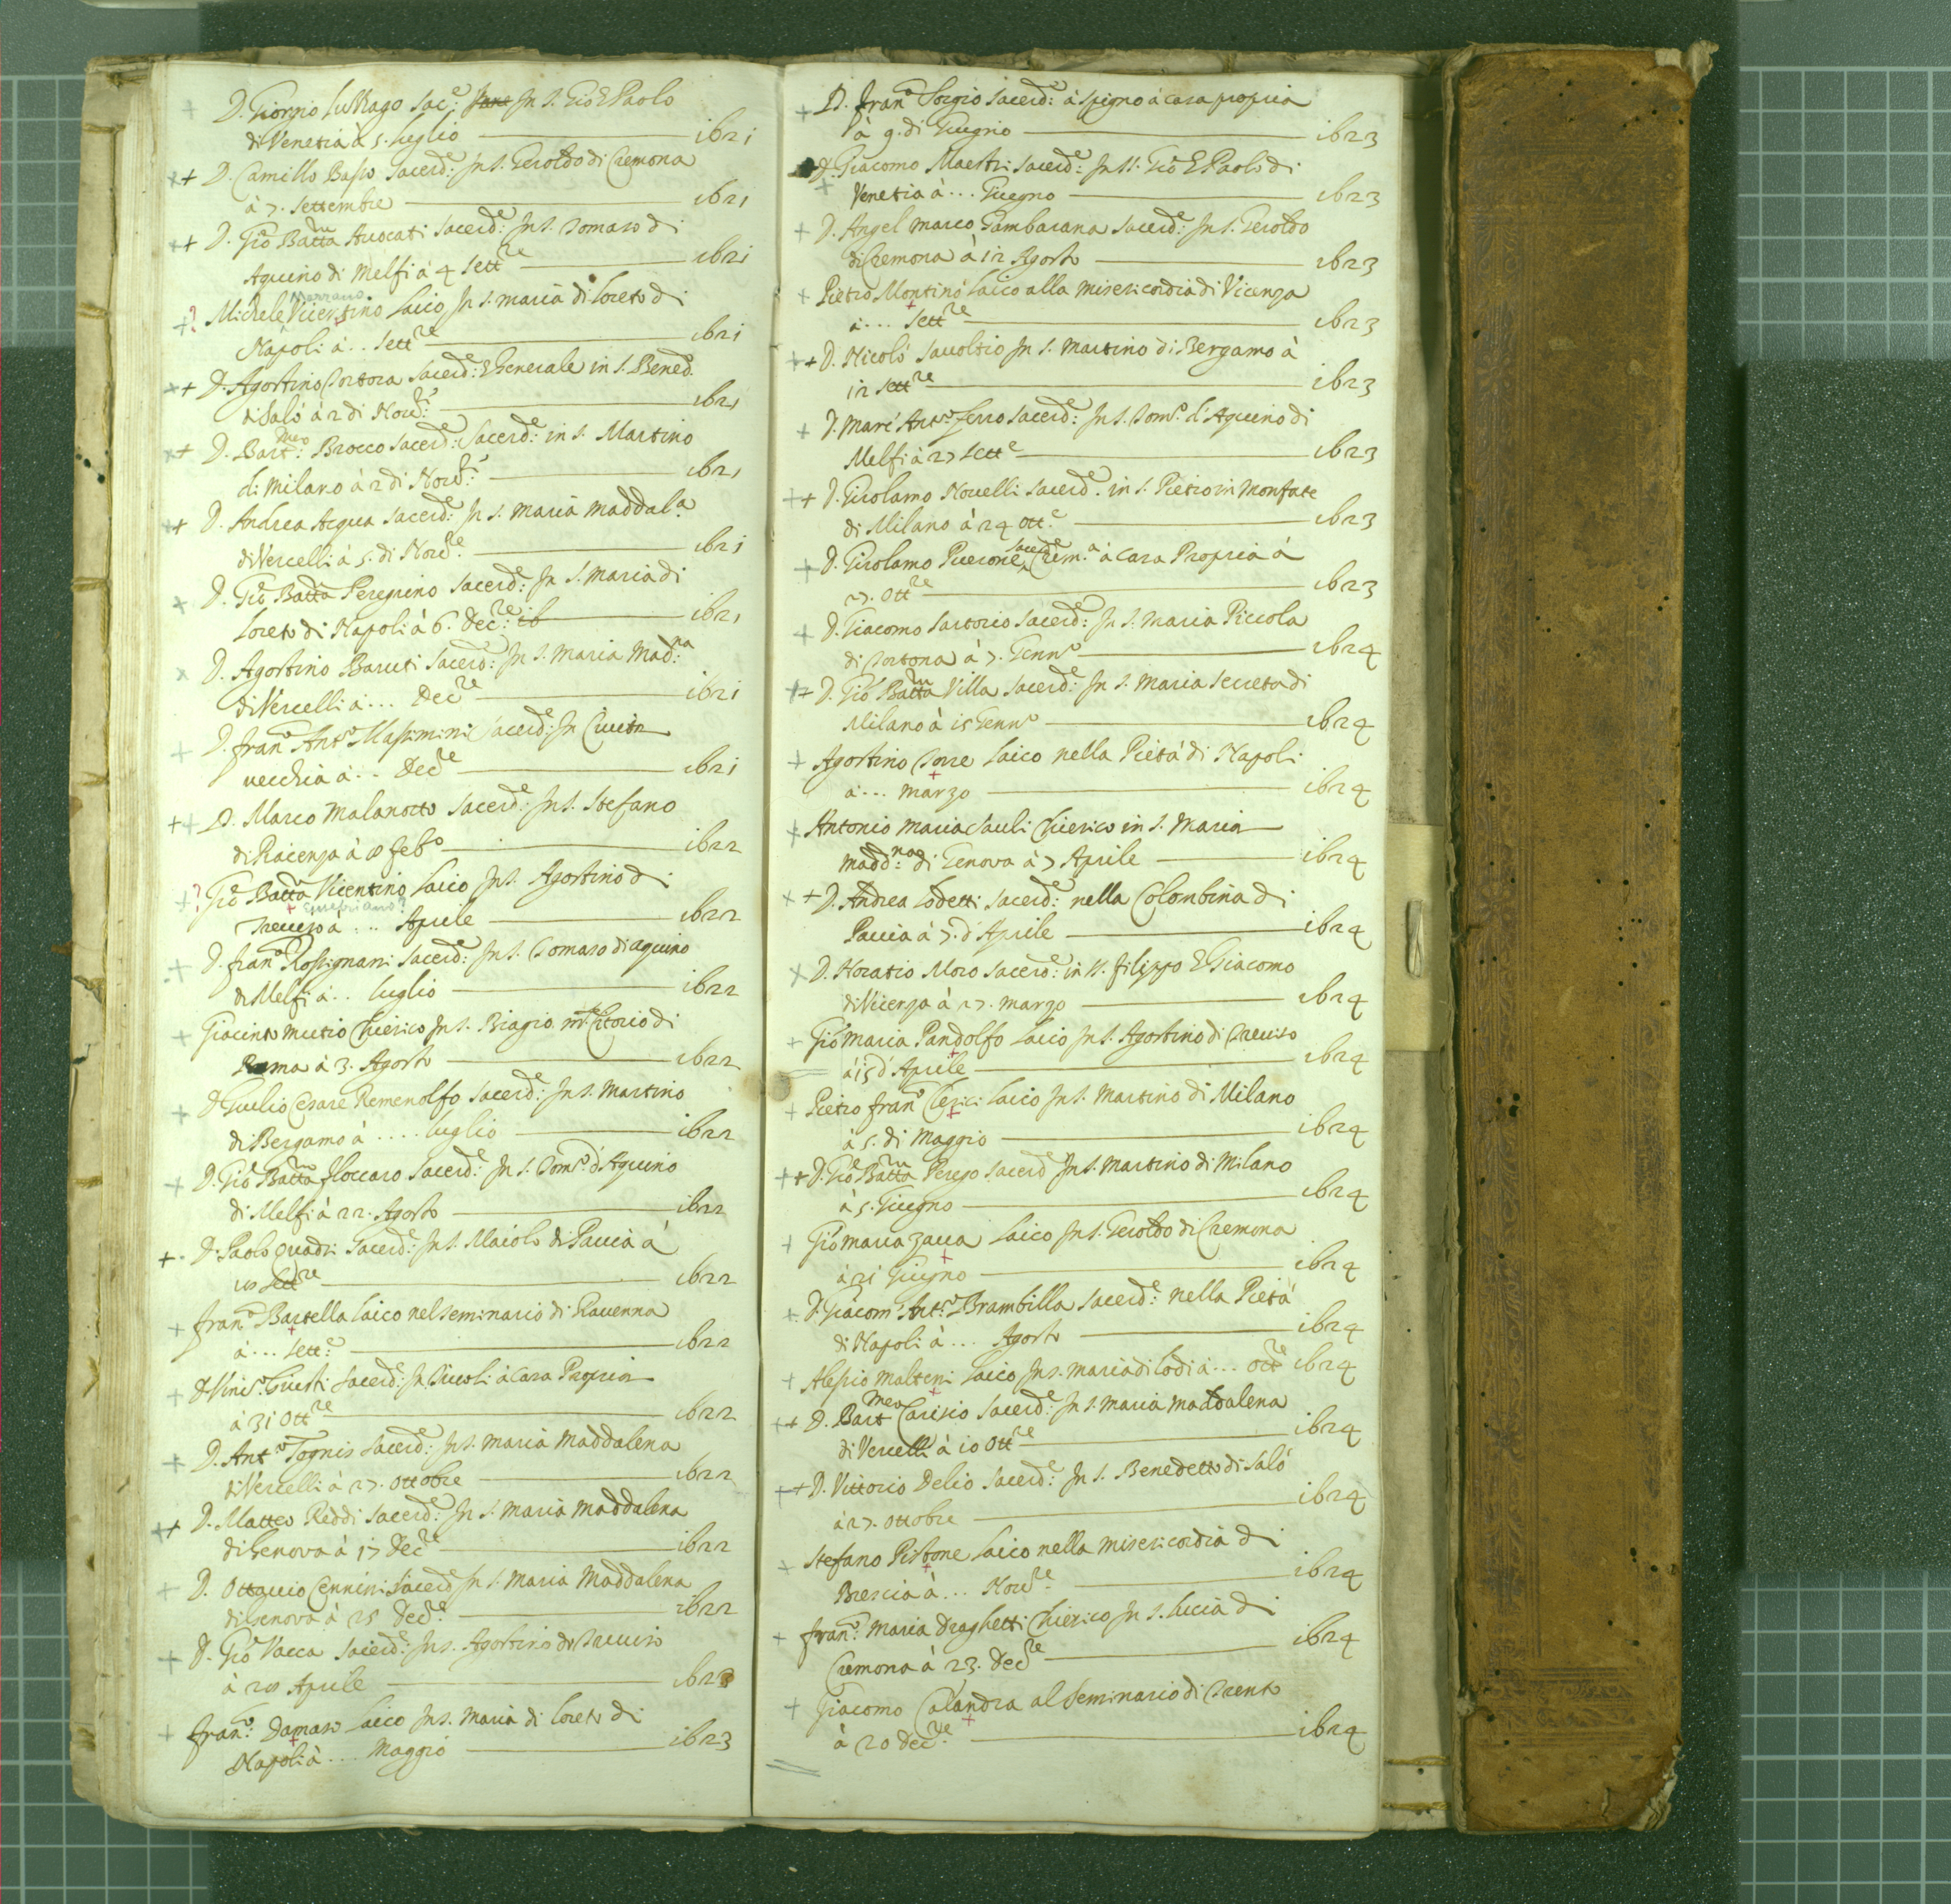 D. Giorgio Luzzago Sac.e: In S. Gio E Paolo
di Venetia à 5. luglio — i6zi
D. Camillo Basso Sacerd.e: In S. Geroldo di Cremona
à 7. Settembre — i6z1
D. Gio Batta Auocati Sacerd.e: In S. Tomaso di
Aquino di Melfi à 4 Sett.re — i6zi
Michele Vicentino Laico In S. maria di loreto di
Napoli à .. Sett.re — i6zi
D. Agostino Tortora Sacerd.e: E Generale in S. Bened.
di Salò à 2 di Nou.e: — i6z1
D. Bart.meo: Brocco Sacerd.e: Sacerd.e: in S. Martino
di Milano à 2 di Nou.e: — i6z1
D. Andrea Acqua Sacerd.e: In S. Maria Maddal.a
di Vercelli à 5. di Nou.re — i6z1
D. Gio Batta Peregrino Sacerd.e: In S. Maria di
Loreto di Napoli à 6. Dec.re: i6 — i6z1
D. Agostino Baruti Sacerd.e: In S. Maria Mad.na
di Vercelli à ... Dec.re — i6zi
D. Fran.o Ant.o Massimini Sacerd.e: In Ciuita
uecchia à .. Dec.e — i6zi
D. Marco Malanotto Sacerd.e: In S. Stefano
di Piacenza à feb.o — i6zz
Gio Batta Vicentino Laico In S. Agostino di
Treuiso à ... Aprile — i6zz
D. Fran.o Rossignani Sacerd.e: In S. Tomaso di aquino
di Melfi à .. luglio — i6zz
Giacinto Mutio Chierico In S. Biagio m.Citorio di
Roma à 3. Agosto — i6zz
D. Giulio Cesare Remenolfo Sacerd.e: In S. Martino
di Bergamo à .... luglio — i6zz
D. Gio Batta Floccaro Sacerd.e: In S. Tom.o d'Aquino
di Melfi à 22. Agosto — i6zz
D. Paolo Quadri Sacerd.e: In S. Maiolo di Pauia à
Sett.re — i6zz
Fran.o Bartella Laico nel seminario di Rauenna
à ... Sett.e: — i6zz
D. Vinc.o Giusti Sacerd.e: In Tiuoli à Casa Propria
à 31 Ott.re — i6zz
D. Ant.o Tognis Sacerd.e: In S. Maria Maddalena
di Vercelli à 27. Ottobre — i6zz
D. Matteo Reddi Sacerd.e: In S. Maria Maddalena
di Genova à 17 Dec.re — i6zz
D. Ottauio Cennini Sacerd.e In S. Maria Maddalena
di Genova à 25 Dec.e: — i6zz
D. Gio Vacca Sacerd.e: In S. Agostino di Treuiso
à Aprile — i6z3
Fran.o: Damaso Laico In S. Maria di Loreto di
Napoli à ... Maggio — i6z3
D. Fran.o Sorgio Sacerd.e: à Spigno à casa propria
à 9. di Giugno — i6z3
D. Giacomo Maestri Sacerd.e: In SS. Gio E Paolo di
Venetia à ... Giugno — i6z3
D. Angel Marco Gambarana Sacerd.e: In S. Geroldo
di Cremona à 12 Agosto — i6z3
Pietro Montino Laico alla Misericordia di Vicenza
à ... Sett.re — i6z3
D. Nicolò Sauoltio In S. Martino di Bergamo à
12 Sett.re — i6z3
D. Marc' Ant.o Serro Sacerd.e: In S. Tom.o d'Aquino di
Melfi à 27 Sett.e — i6z3
D. Girolamo Nouelli Sacerd.e. in S. Pietro in Monfate
di Milano à 24 Ott.e — i6z3
D. Girolamo Sacerd.e Crem.a à Casa Propria à
27. Ott.re — i6z3
D. Giacomo Sartorio Sacerd.e: In S. Maria Piccola
di Tortona à 7. Genn.o — i6z4
D. Gio Batta Villa Sacerd.e: In S. Maria Secreta di
Milano à 15 Genn.o — i6z4
Agostino Torre Laico nella Pietà di Napoli
à ... Marzo — i6z4
Antonio Maria Sauli Chierico in S. Maria
Madd.na di Genova à 7 Aprile — i6z4
D. Andrea Lodetti Sacerd.e: nella Colombina di
Pauia à 7. d'Aprile — i6z4
D. Horatio Moro Sacerd.e: in SS. Filippo E Giacomo
di Vicenza à 27. Marzo — i6z4
Gio Maria Pandolfo Laico In S. Agostino di Treuiso
à 15 d'Aprile — i6z4
Pietro Fran.o Clerici Laico In S. Martino di Milano
à 5. di Maggio — i6z4
D. Gio Batta Perego Sacerd.e In S. Martino di Milano
à 5. Giugno — i6z4
Gio Maria Zaua Laico In S. Geroldo di Cremona
à 21 Giugno — i6z4
D. Giacom' Ant.o Brambilla Sacerd.e: nella Pietà
di Napoli à ... Agosto — i6z4
Alessio Malteni Laico In S. Maria di Lodi à ... Ott.e i6z4
D. Bart.meo Carisio Sacerd.e: In S. Maria Maddalena
di Vercelli à 10 Ott.re — i6z4
D. Vittorio Delio Sacerd.e: In S. Benedetto di Salò
à 27. Ottobre — i6z4
Stefano Pisbone Laico nella Misericordia di
Brescia à ... Nou.re — i6z4
Fran.o: Maria Draghetti Chierico In S. Lucia di
Cremona à 23. Dec.re — i6z4
Giacomo Calandra al Seminario di Trento
à 20 Dec.re — i6z4